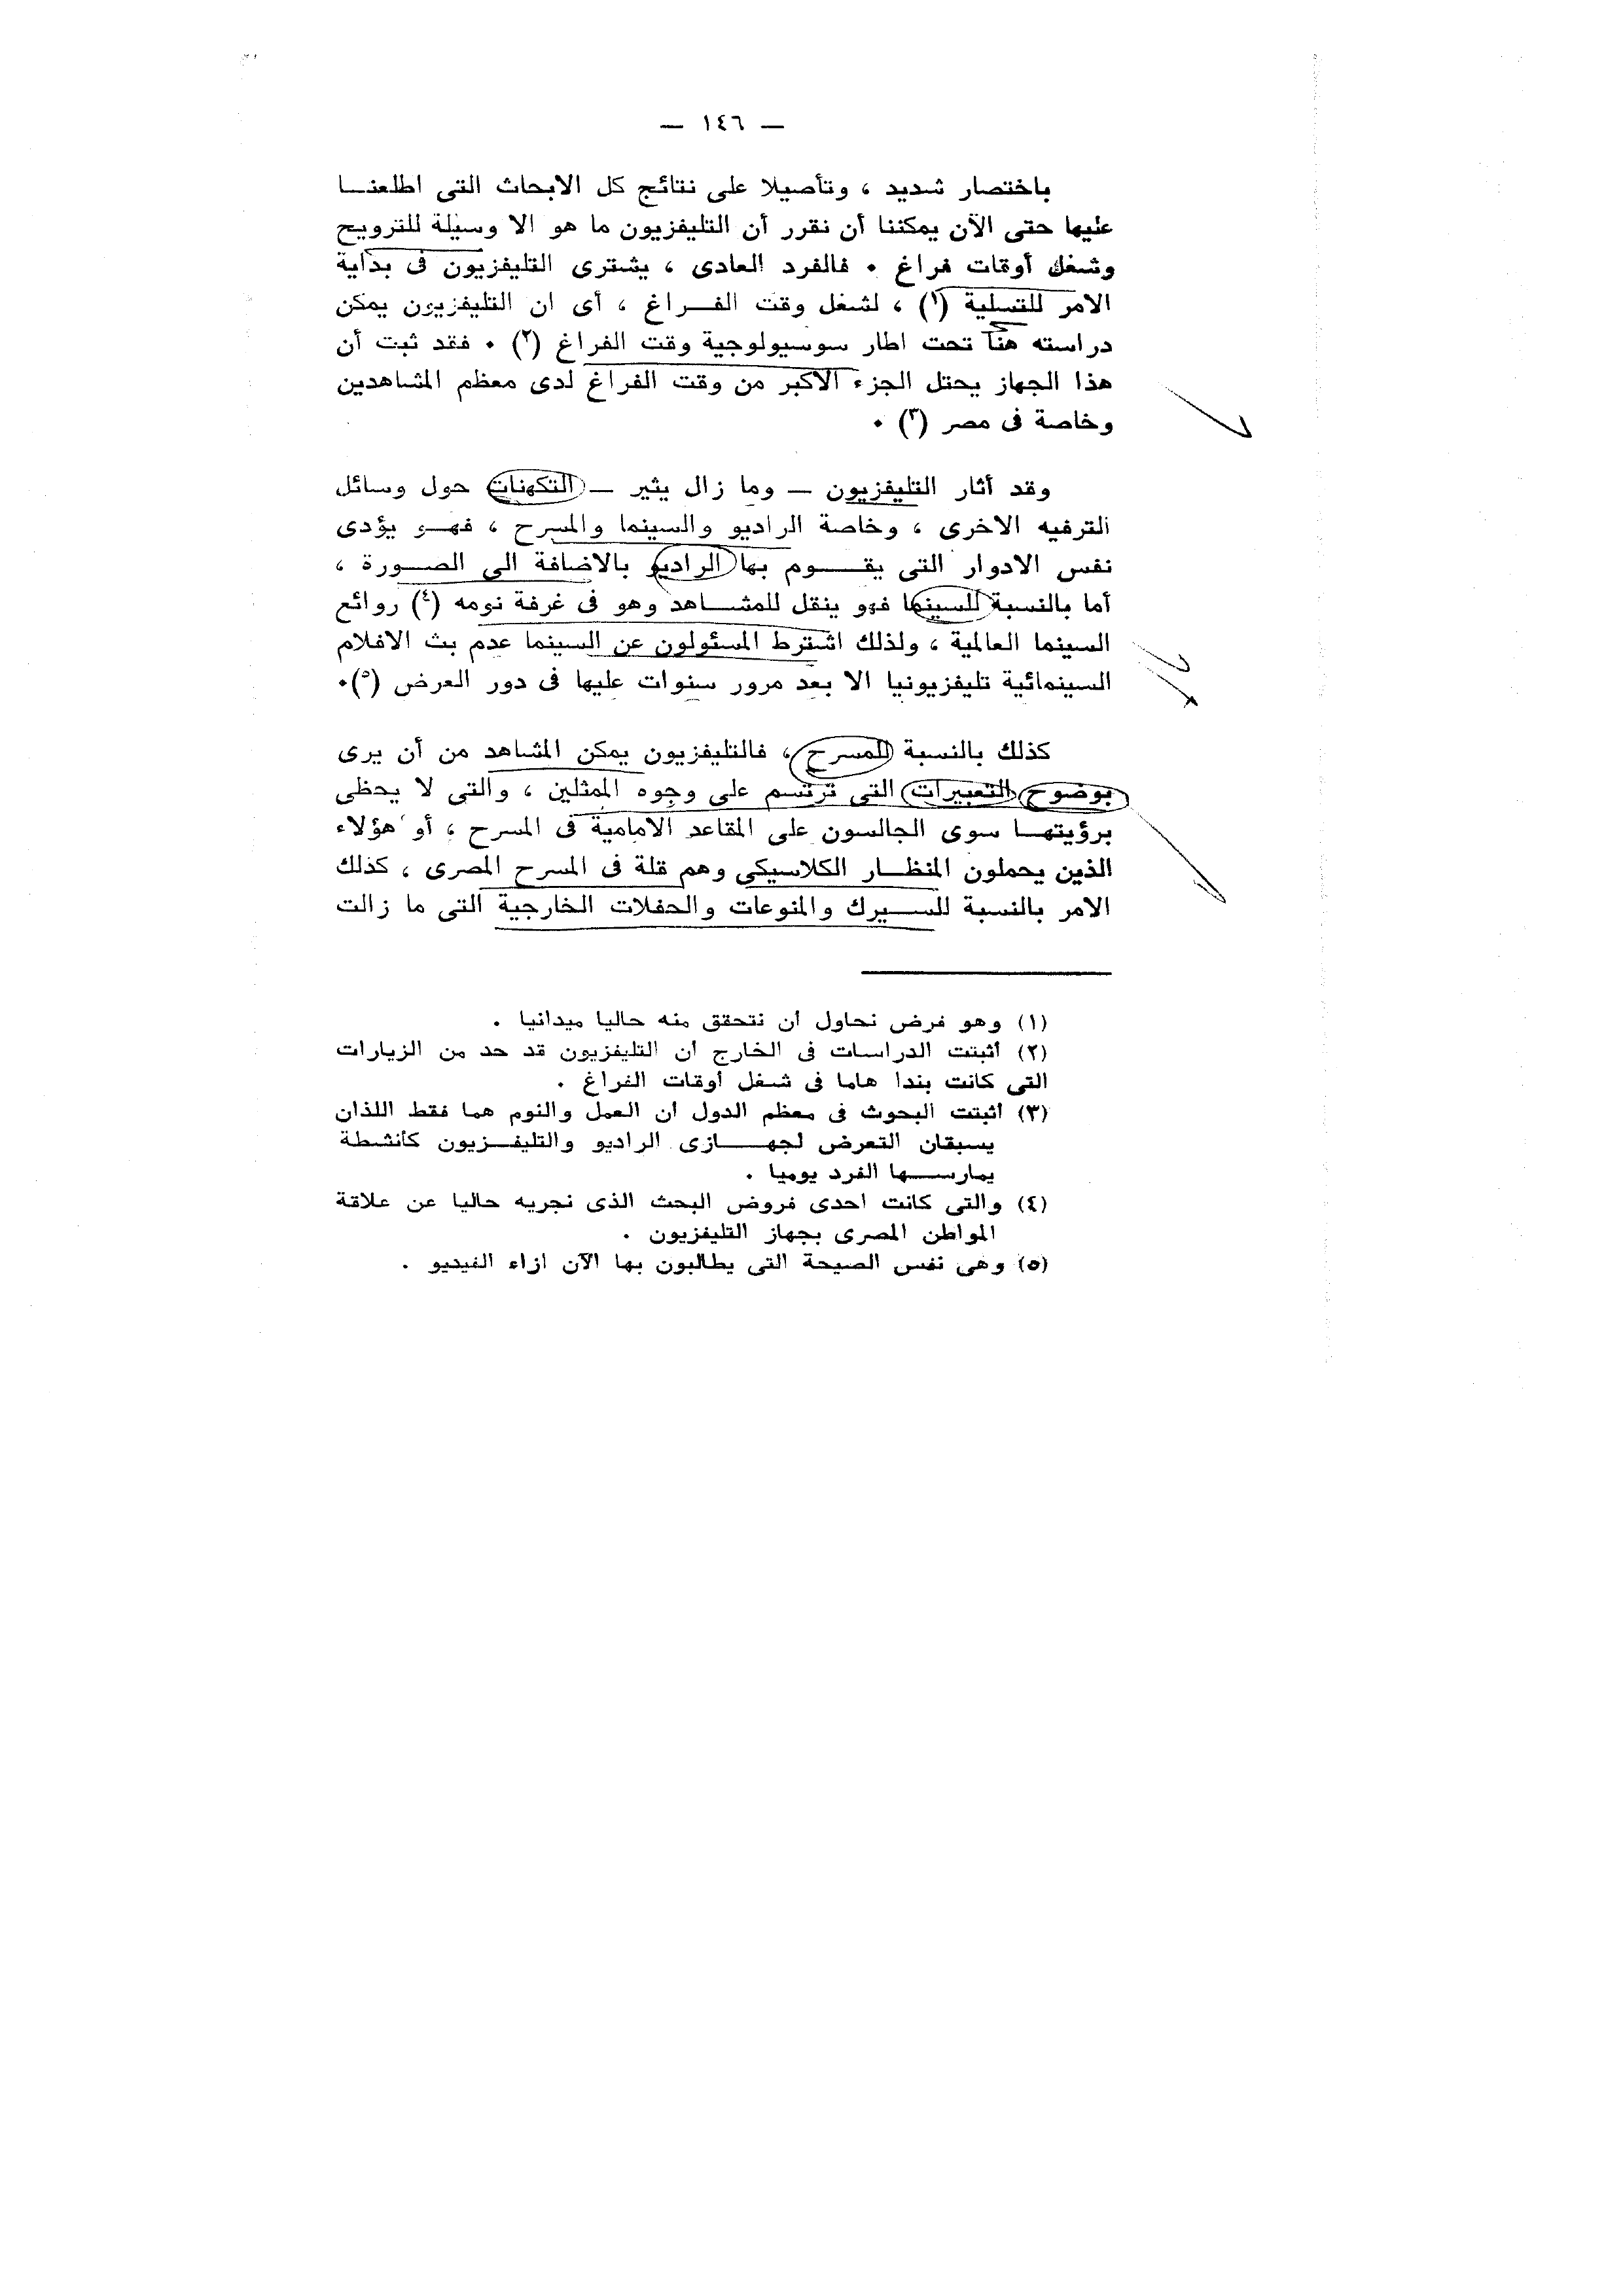 — ١٤٦ —
باختصار شديد ، وتأصيلا على نتائج كل الابحاث التى اطلعنا
عليها حتى الآن يمكننا أن نقرر أن التليفزيون ما هو الا وسيلة للترويح
وشغل أوقات فراغ ٠ فالفرد العادى ، يشترى التليفزيون فى بداية
الامر للتسلية (١) ، لشغل وقت الفراغ ، أى ان التليفزيون يمكن
دراسته هنا تحت اطار سوسيولوجية وقت الفراغ (٢) ٠ فقد ثبت أن
هذا الجهاز يحتل الجزء الاكبر من وقت الفراغ لدى معظم المشاهدين
وخاصة فى مصر (٣) ٠
وقد أثار التليفزيون — وما زال يثير — التكهنات حول وسائل
الترفيه الاخرى ، وخاصة الراديو والسينما والمسرح ، فهو يؤدى
نفس الادوار التى يقوم بها الراديو بالاضافة الى الصورة ،
أما بالنسبة للسينما فهو ينقل للمشاهد وهو فى غرفة نومه (٤) روائع
السينما العالمية ، ولذلك اشترط المسئولون عن السينما عدم بث الافلام
السينمائية تليفزيونيا الا بعد مرور سنوات عليها فى دور العرض (٥)٠
كذلك بالنسبة للمسرح ، فالتليفزيون يمكن المشاهد من أن يرى
بوضوح التعبيرات التى ترتسم على وجوه الممثلين ، والتى لا يحظى
برؤيتها سوى الجالسون على المقاعد الامامية فى المسرح ، أو هؤلاء
الذين يحملون المنظار الكلاسيكى وهم قلة فى المسرح المصرى ، كذلك
الامر بالنسبة للسيرك والمنوعات والحفلات الخارجية التى ما زالت
(١) وهو فرض نحاول أن نتحقق منه حاليا ميدانيا .
(٢) أثبتت الدراسات فى الخارج أن التليفزيون قد حد من الزيارات
التى كانت بندا هاما فى شغل أوقات الفراغ .
(٣) أثبتت البحوث فى معظم الدول أن العمل والنوم هما فقط اللذان
يسبقان التعرض لجهازى الراديو والتليفزيون كأنشطة
يمارسها الفرد يوميا .
(٤) والتى كانت احدى فروض البحث الذى نجريه حاليا عن علاقة
المواطن المصرى بجهاز التليفزيون .
(٥) وهى نفس الصيحة التى يطالبون بها الآن ازاء الفيديو .